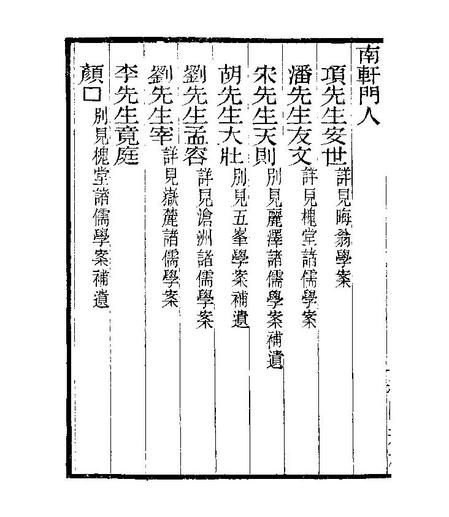 南軒門人
項先生安世詳見晦翁學案
潘先生友文詳見槐堂諸儒學案
宋先生天則別見麗澤諸儒學案補遺
胡先生大壯別見五峯學案補遺
劉先生孟容詳見滄洲諸儒學案
劉先生宰詳見嶽麓諸儒學案
李先生竟庭
顏囗別見槐堂諸儒學案補遺